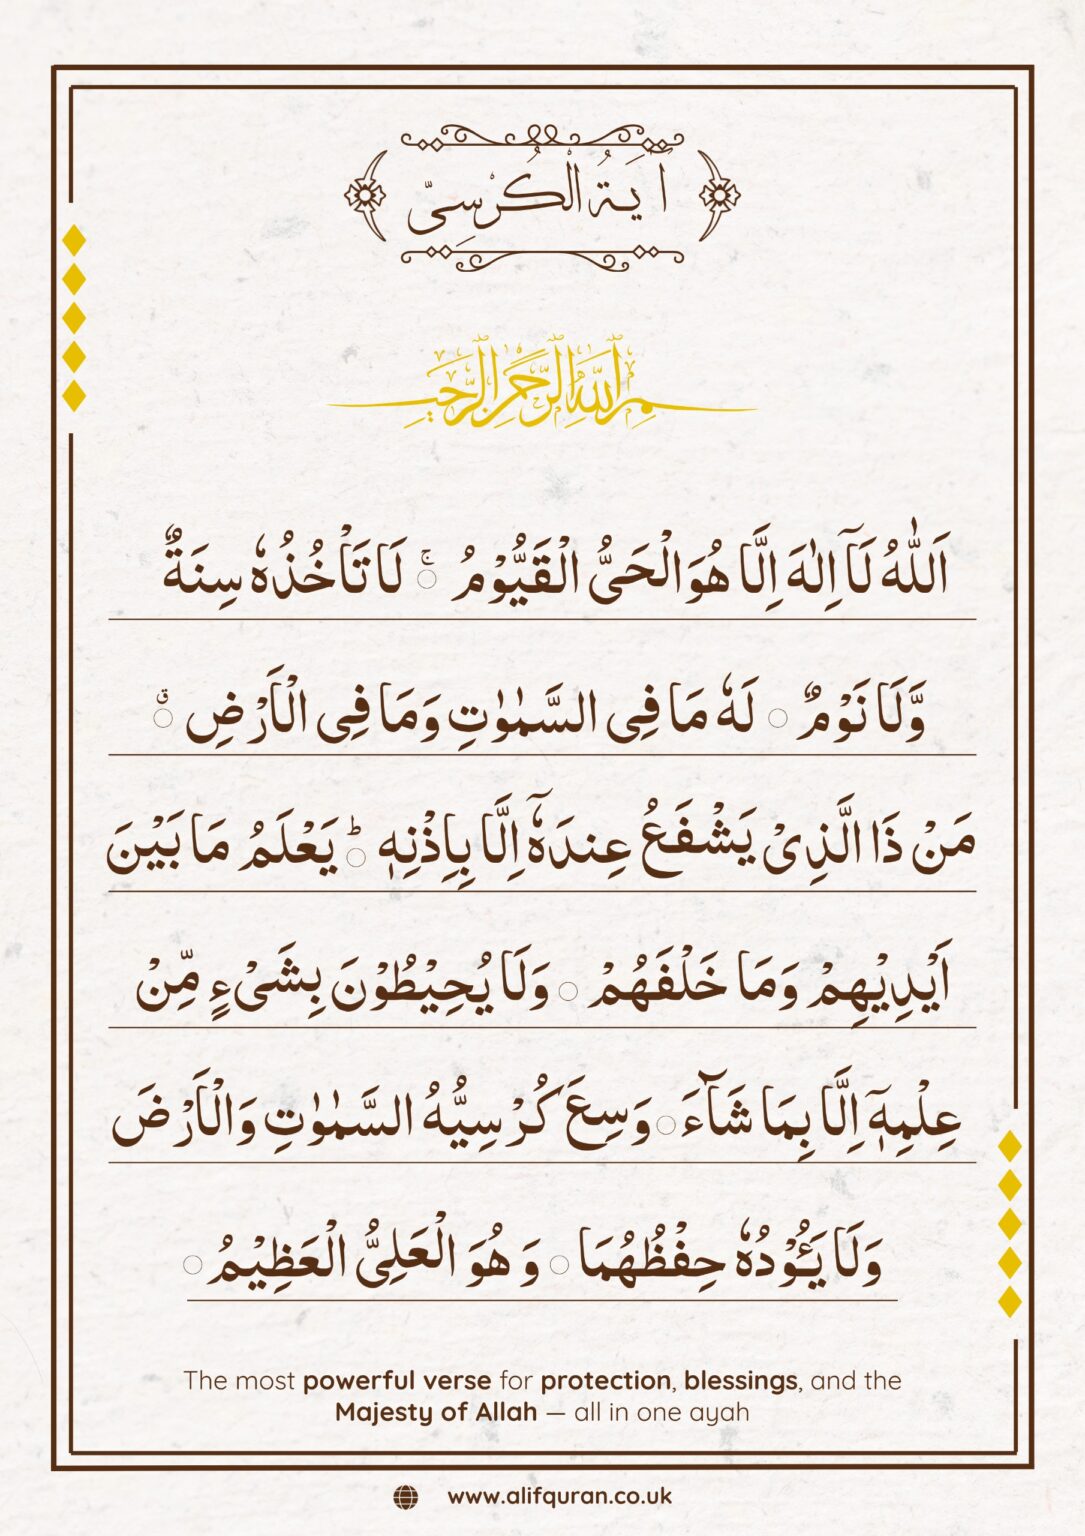 آيَةُ الْكُرْسِيّ
بسم الله الرحمن الرحيم
اَللّٰهُ لَآ اِلٰهَ اِلَّا هُوَ الْحَىُّ الْقَيُّوْمُ ۚ لَا تَاْخُذُهٗ سِنَةٌ
وَّلَا نَوْمٌ ۝ لَهٗ مَا فِى السَّمٰوٰتِ وَمَا فِى الْاَرْضِ ۝ۗ
مَنْ ذَا الَّذِىْ يَشْفَعُ عِندَهٗٓ اِلَّا بِاِذْنِهٖ ؕ يَعْلَمُ مَا بَيْنَ
اَيْدِيْهِمْ وَمَا خَلْفَهُمْ ۝ وَلَا يُحِيْطُوْنَ بِشَىْءٍ مِّنْ
عِلْمِهٖٓ اِلَّا بِمَا شَآءَ ۝ وَسِعَ كُرْسِيُّهُ السَّمٰوٰتِ وَالْاَرْضَ
وَلَا يَـُٔوْدُهٗ حِفْظُهُمَا ۝ وَ هُوَ الْعَلِىُّ الْعَظِيْمُ ۝
The most powerful verse for protection, blessings, and the
Majesty of Allah — all in one ayah
www.alifquran.co.uk